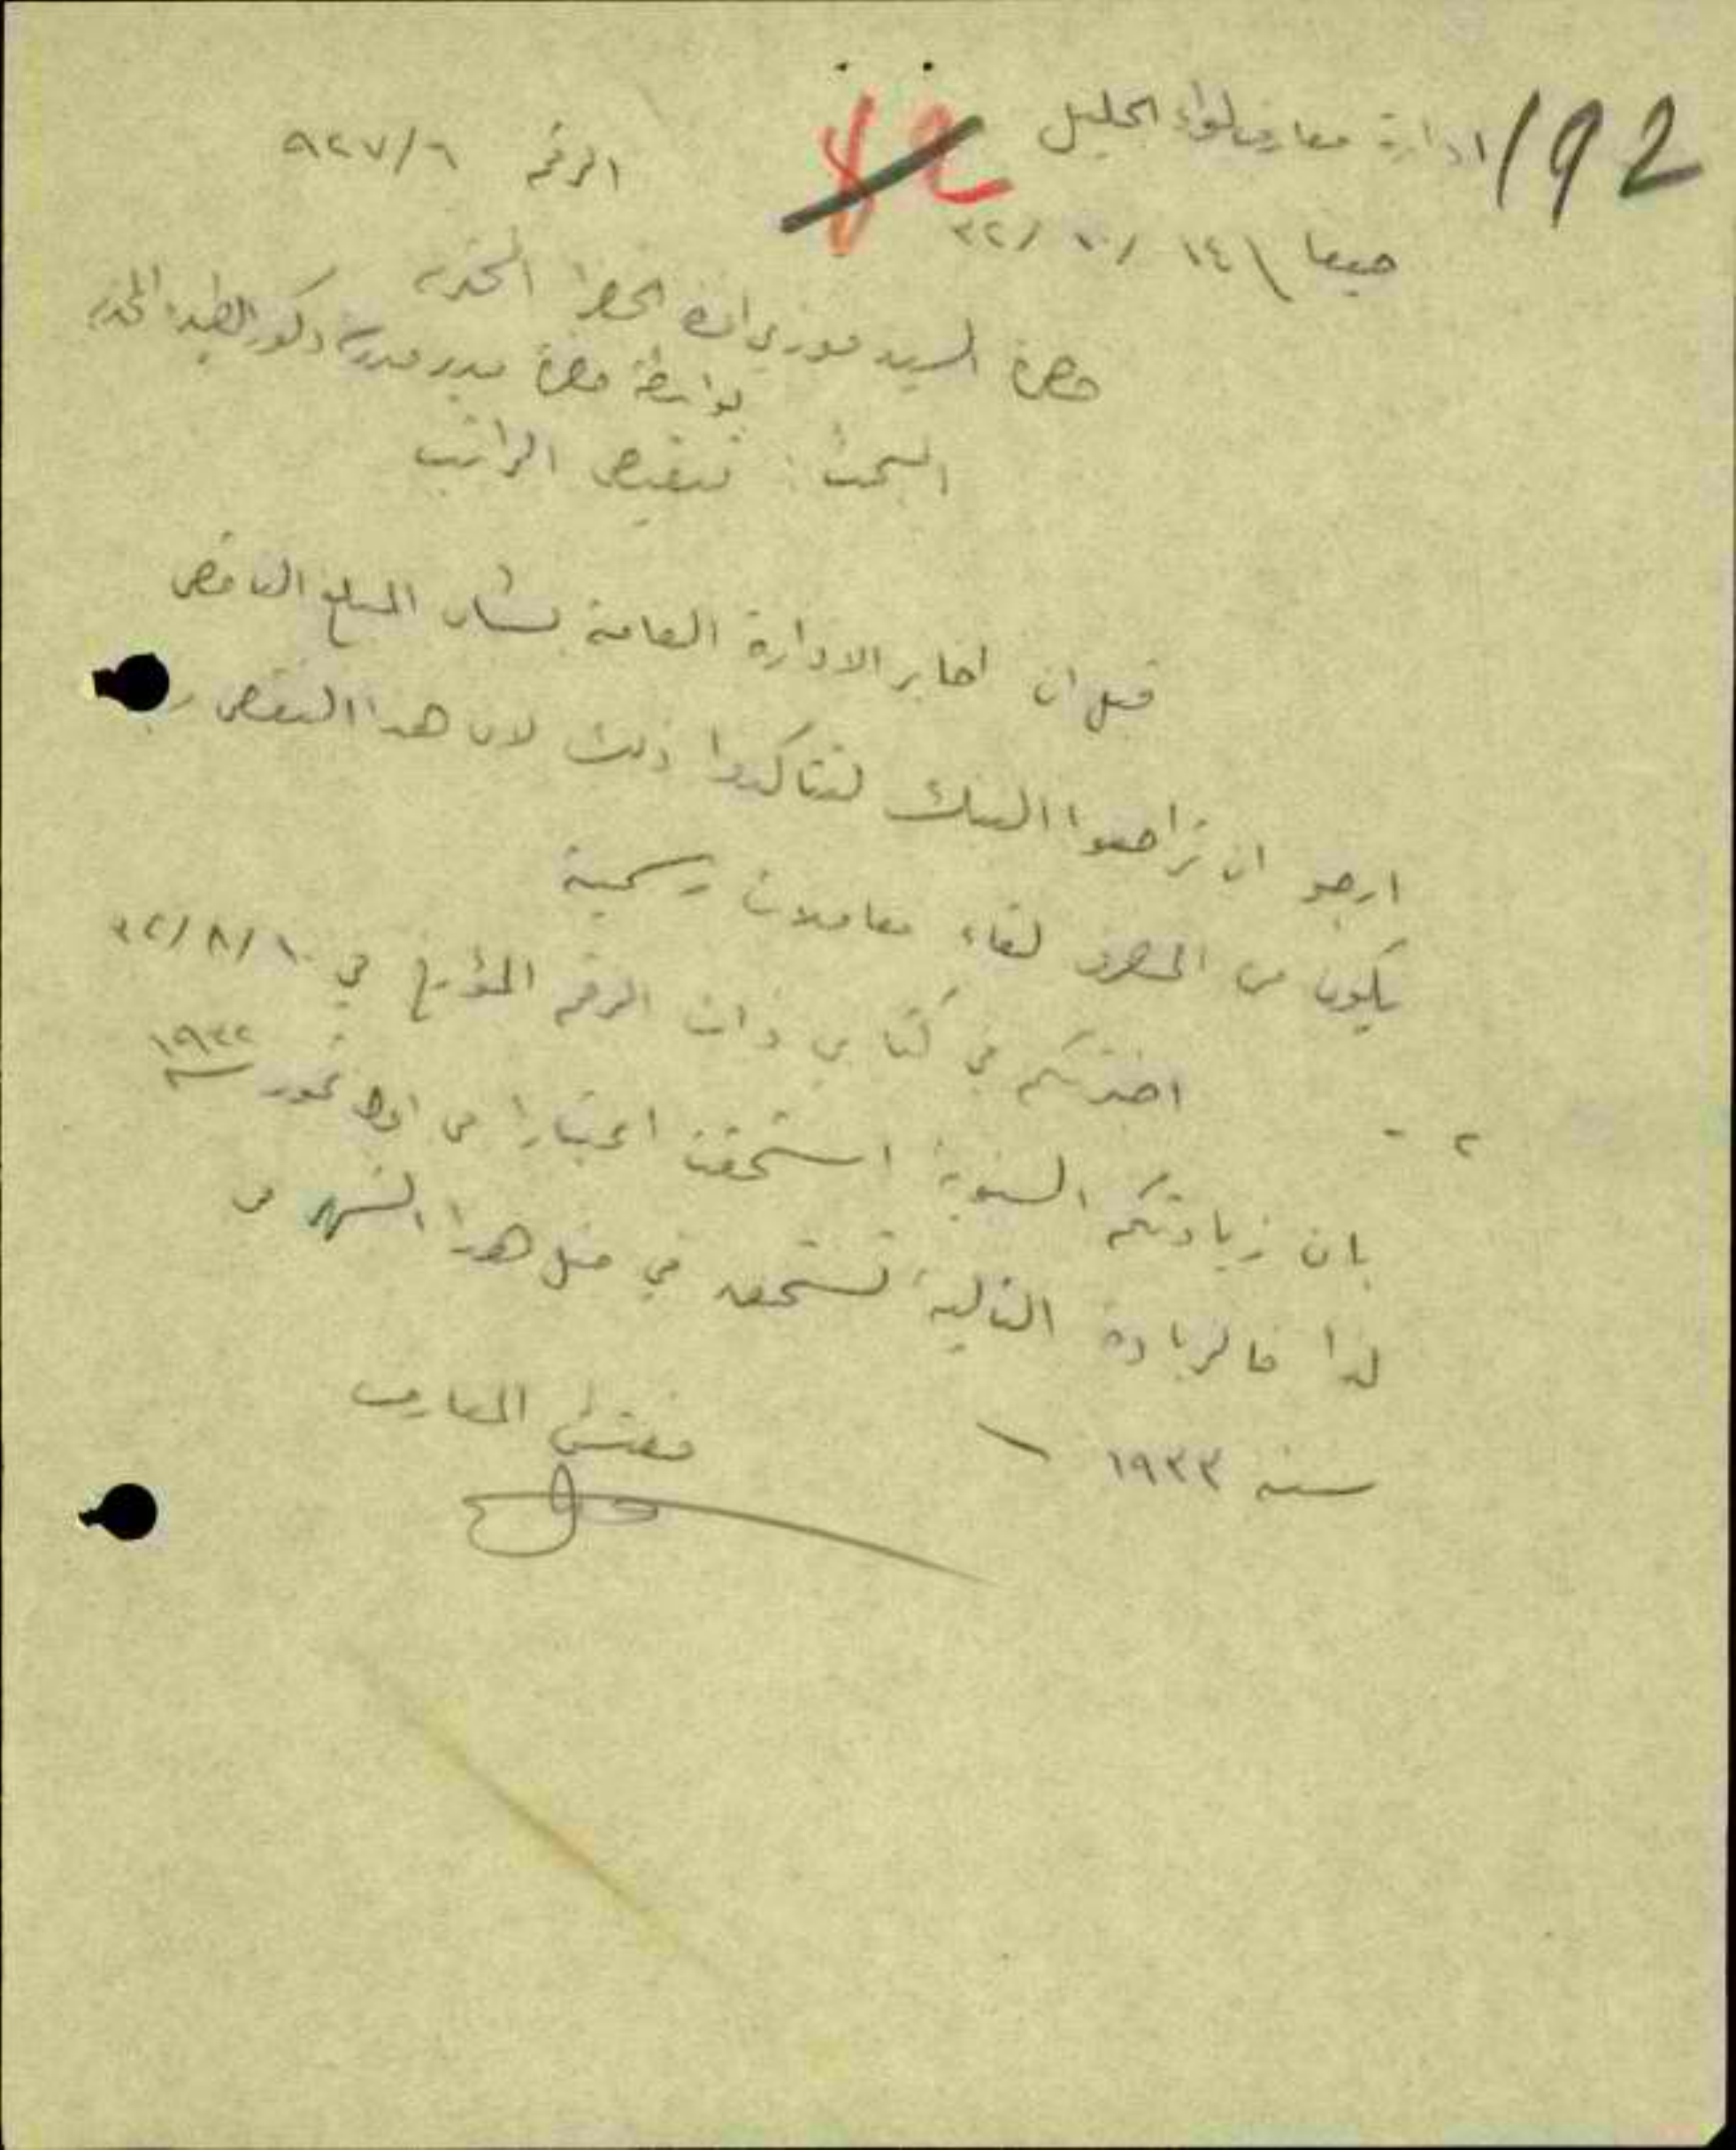 192
ادارة معارف لواء الجليل
الرقم ٩٢٧/٦
حيفا ١٤/١٠/٣٢
حضرة السيد فوزي افندي الخضرا المحترم
بواسطة حضرة مدير مدرسة ذكور المحترم
البحث : تنقيص الراتب
قبل ان اخابر الادارة العامة بشان المبلغ الناقص
ارجو ان تراجعوا البنك لتتأكدوا ذلك لان هذا النقص
يكون من المصرف لقاء معاملات رسمية
٢ - اخبرتكم في كتابي ذات الرقم المؤرخ في ١٠/٨/٣٢
بان زيادتكم السنوية استحقت اعتبارا من اول تموز سنة ١٩٣٢
لذا فالزيادة التالية تستحق في مثل هذا الشهر من
سنة ١٩٣٣
مفتش المعارف